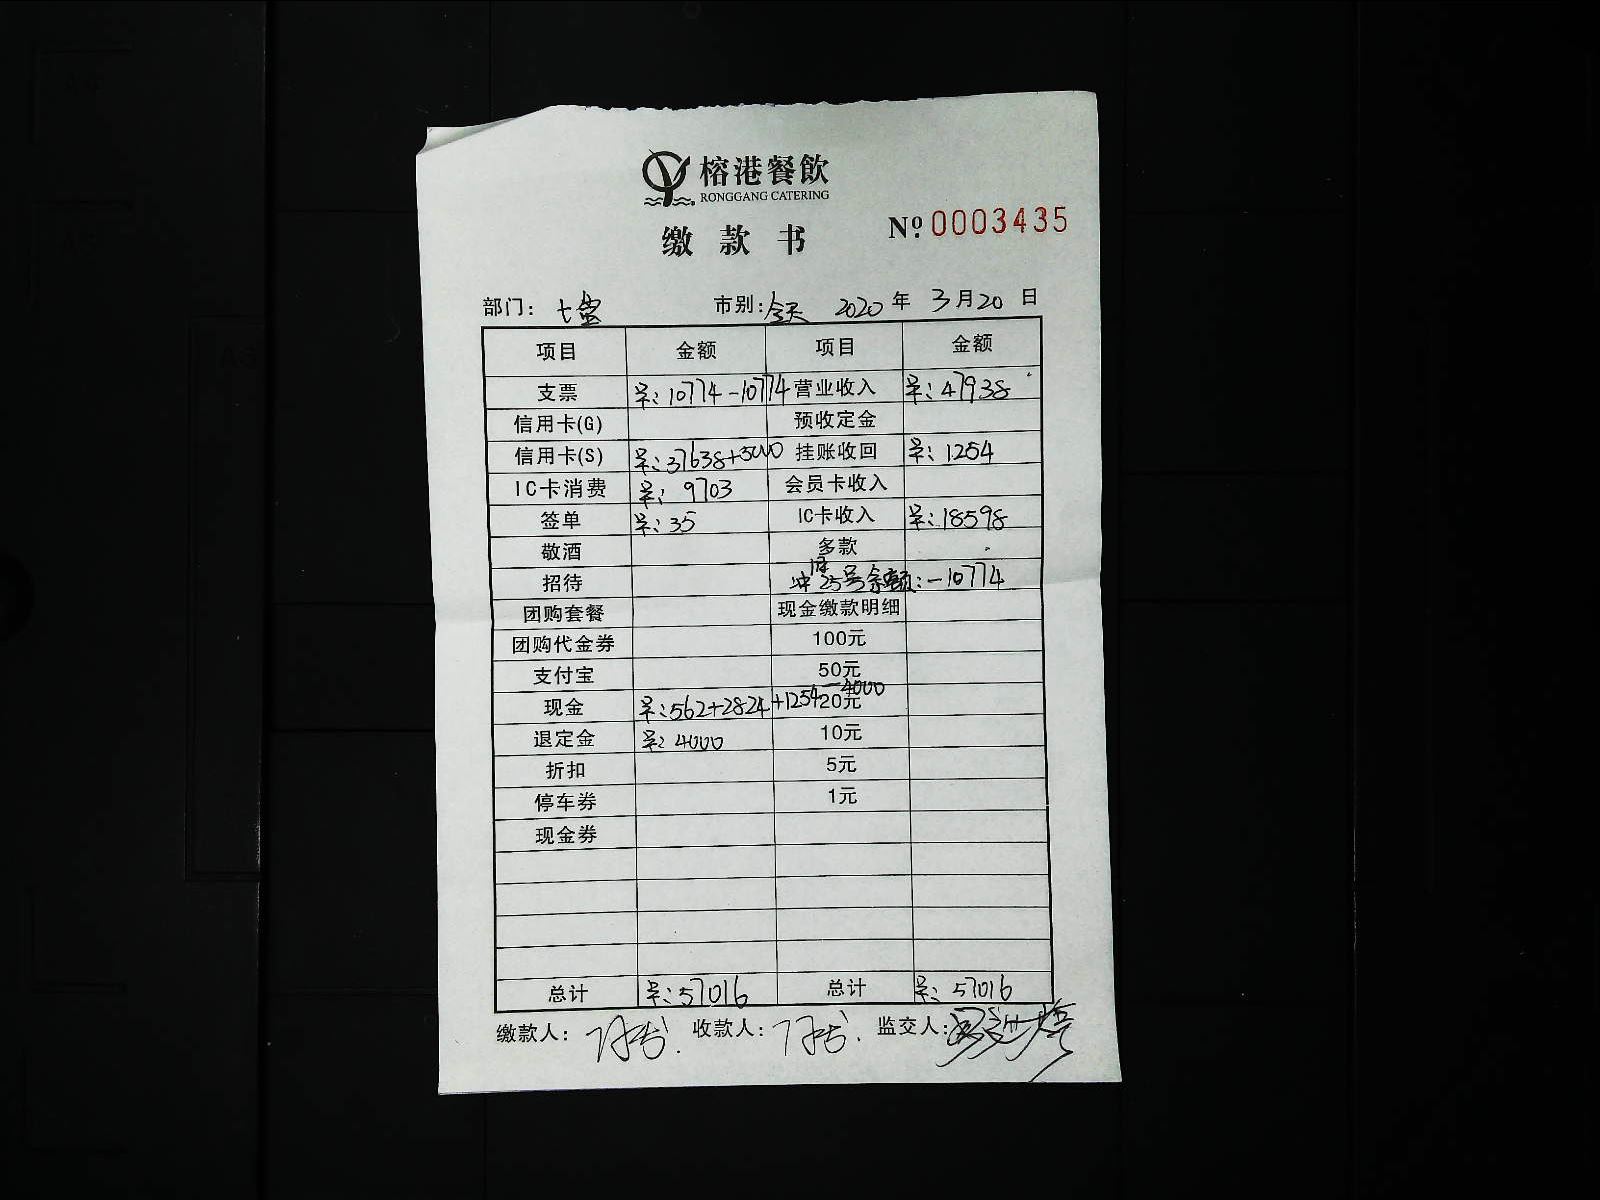 榕港餐飲
RONGGANG CATERING
缴款书
Nº 0003435
部门: 七 市别: 全天 2020 年 3 月 20 日
项目 金额 项目 金额
支票 : 10774-10774 营业收入 : 47938
信用卡(G) 预收定金
信用卡(S) : 37638+5000 挂账收回 : 1254
IC卡消费 : 9703 会员卡收入
签单 : 35 IC卡收入 : 18598
敬酒 多款
招待 冲 25号余额: -10774
团购套餐 现金缴款明细
团购代金券 100元
支付宝 50元
现金 : 562+2824+1254-4000 20元
退定金 : 4000 10元
折扣 5元
停车券 1元
现金券
总计 : 57016 总计 : 57016
缴款人: 收款人: 监交人: